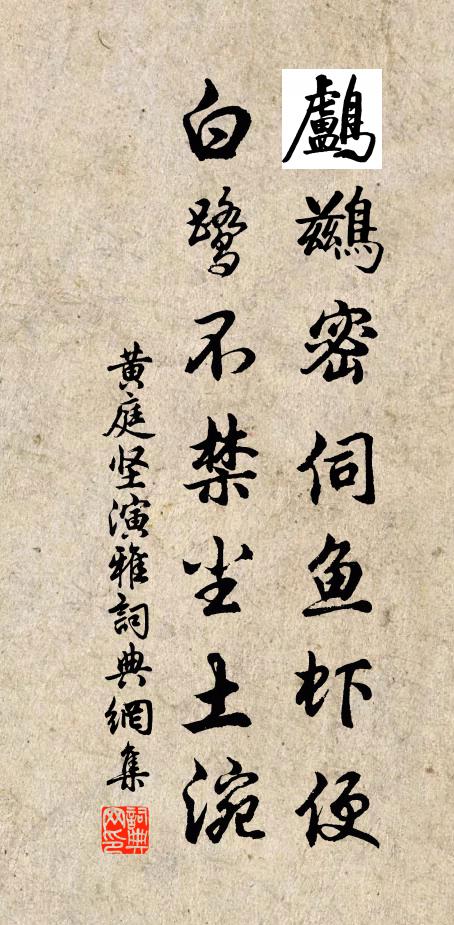 鸕鷀密伺鱼虾便
白鹭不禁尘土涴
黄庭坚演雅詞典網集
詞典网印